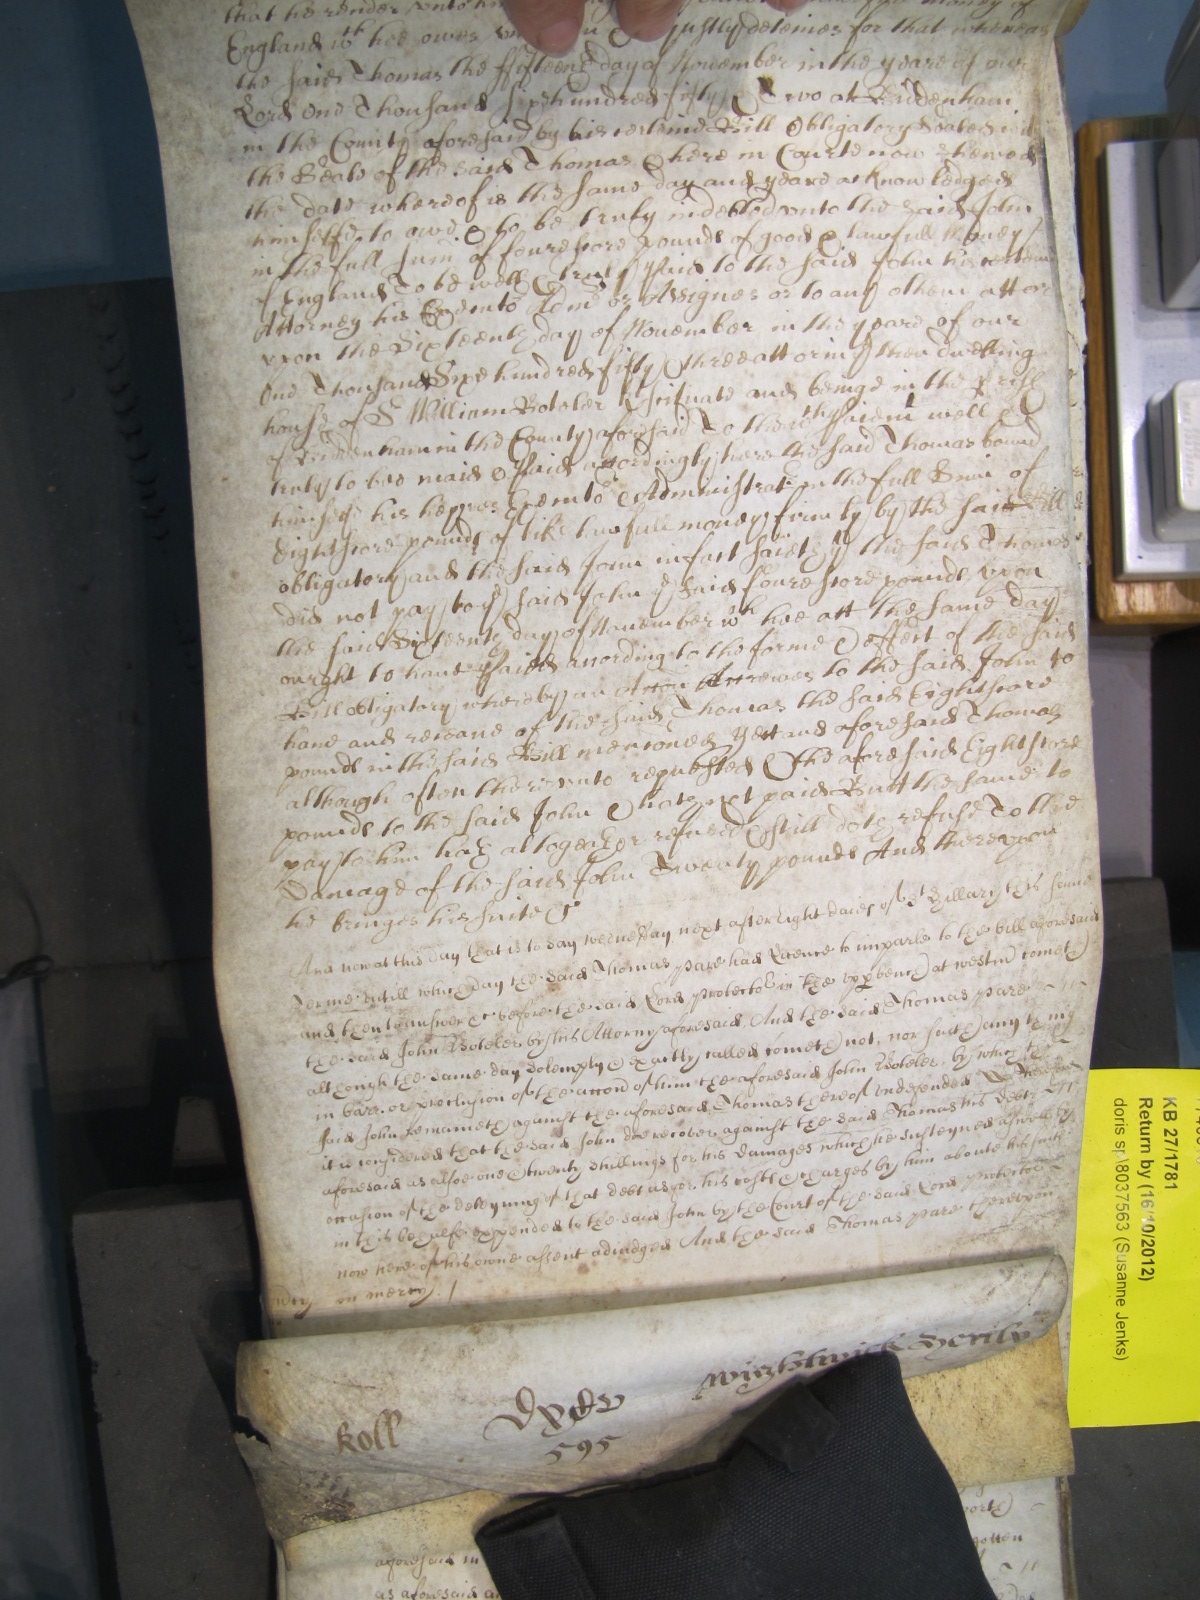 that he render unto him
England wch hee owes unto him & unjustly deteines for that whereas
the said Thomas the fifteenth day of November in the yeare of our
Lord One Thousand Six hundred fifty & Two at Biddenham
in the County aforesaid by his certeine Bill Obligatory Sealed with
the Seale of the said Thomas & here in Courte now shewed
the date whereof is the same day and yeare acknowledged
himselfe to owe & to be truly indebted unto the said John
in the full sum of fourescore pounds of good & lawfull Money
of England To be well & truly paid to the said John his certaine
Attorney his Executors or Assignes or to any of them att or
upon the Sixteenth day of November in the yeare of our
One Thousand Sixe hundred fifty & three att or in the then dwelling
house of Sr William Boteler scituate and beinge in the Prish
of Biddenham in the County aforesaid To the wch paiemt well &
truly to bee made & paid accordingly there the said Thomas bound
himselfe his heyres & Administrat in the full Sum of
Eightscore pounds of like lawfull money firmly by the said Bill
obligatory and the said John in fact saieth yt the said Thomas
did not pay to ye said John ye said fourescore pounds upon
the said Sixteenth day of November wch hee att the same day
ought to have paid according to the forme & effect of the said
Bill obligatory whereby an Accon Accrewes to the said John to
have and receave of the said Thomas the said Eightscore
pounds in the said Bill menconed Yett the aforesaid Thomas
although often thereunto requested & the aforesaid Eightscore
pounds to the said John hath not paid Butt the same to
pay to him hath altogeather refused & still doth refuse To the
Damage of the said John Twenty pounds And thereupon
he bringes his suite &c
And now at this day that is to day wednesday next after Eight daies of St Hillary this same
Terme untill which day the said Thomas Pare had Licence to imparle to the bill aforesaid
and then to answer &c before the said Lord Protector in the upp bench at westmr cometh
the said John Boteler by his Attorny aforesaid. And the said Thomas Pare
although the same day solemply & exactly called cometh not, nor saith any thing
in barr or preclusion of the accon of him the aforesaid John Boteler, by which the
said John remaineth against the aforesaid Thomas thereof undefended Therefore
it is considered that the said John doe recover against the said Thomas his debt
aforesaid as alsoe one & twenty shillings for his damages which he susteyned aswell by
occasion of the deteyning of that debt as for his costs & charges by him aboute his suite
in this behalfe expended to the said John by the Court of the said Lord Protector
now here of his owne assent adiudged And the said Thomas Pare thereupon
in mercy.
Roll
595
KB 27/1781
Return by (16/10/2012)
doris sp\8037563 (Susanne Jenks)
aforesaid in
as aforesaid